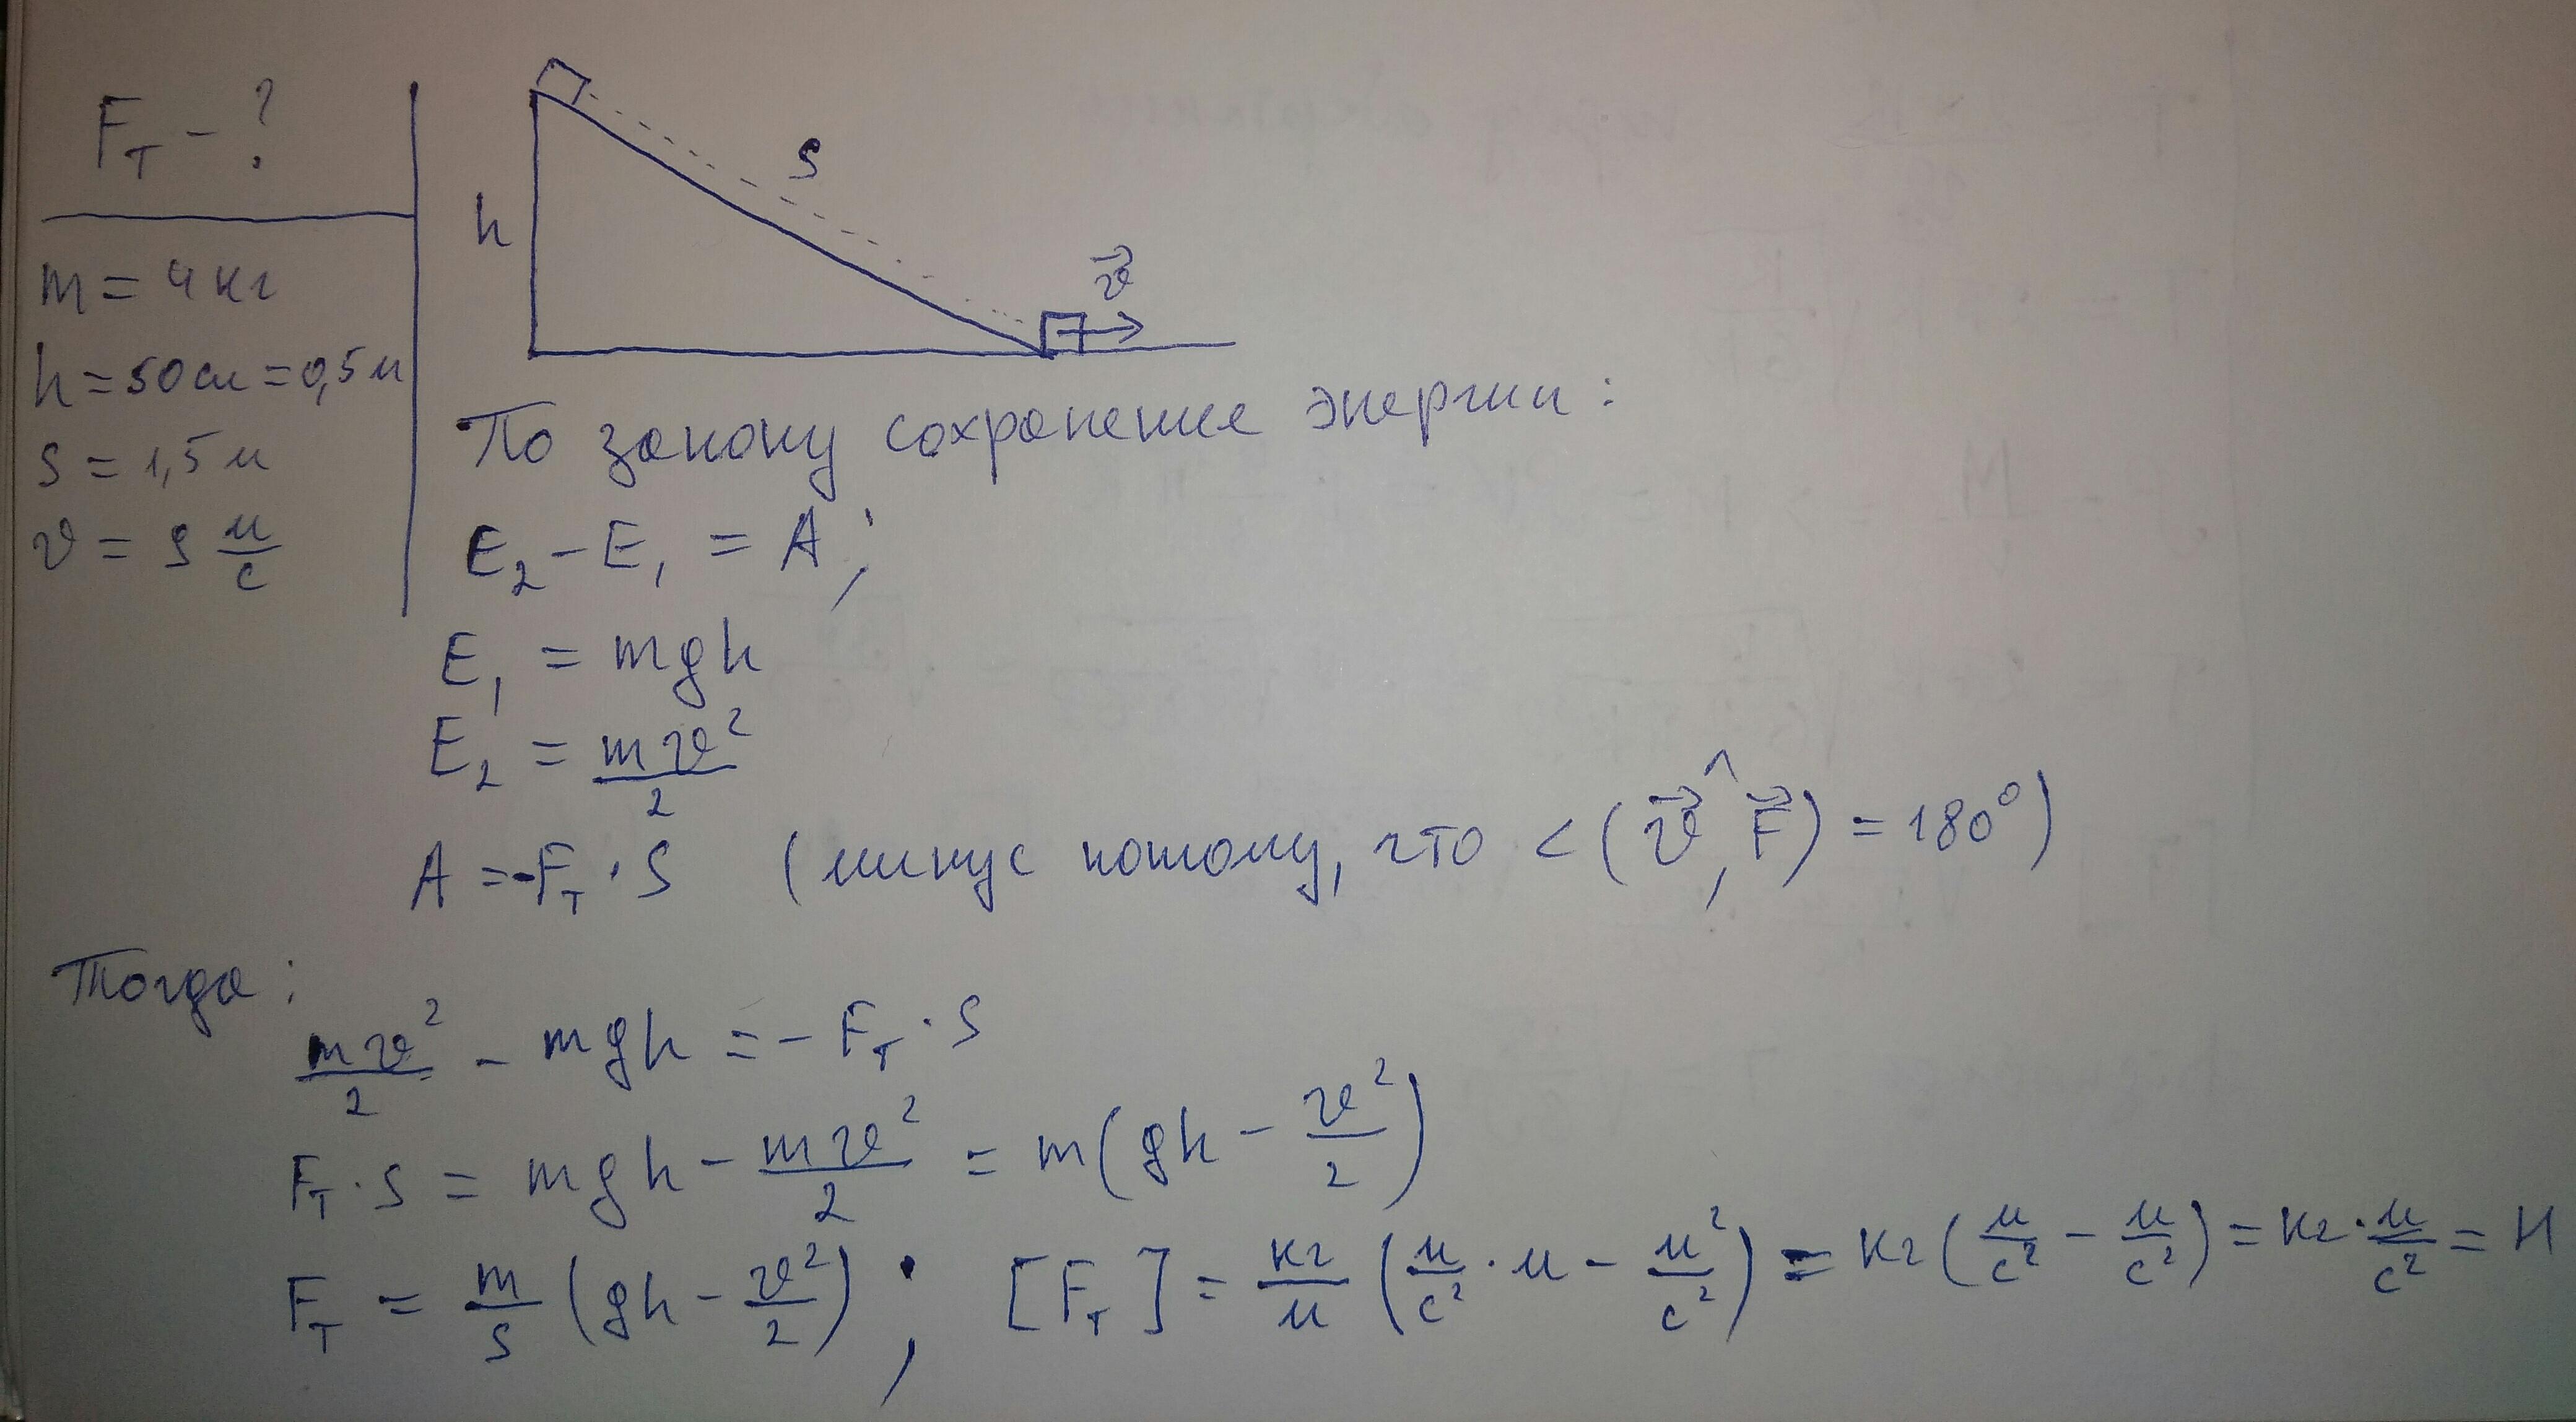 F_T - ?
m = 4 кг
h = 50 см = 0,5 м
S = 1,5 м
v = м/с
h
S
v⃗
По закону сохранения энергии:
E₂ - E₁ = A ;
E₁ = mgh
E₂ = mv²/2
A = -F_T · S (минус потому, что < (v⃗ ^, F⃗) = 180°)
Тогда:
mv²/2 - mgh = - F_T · S
F_T · S = mgh - mv²/2 = m(gh - v²/2)
F_T = m/S (gh - v²/2) ; [F_T] = кг/м (м/с² · м - м²/с²) = кг (м/с² - м/с²) = кг · м/с² = Н